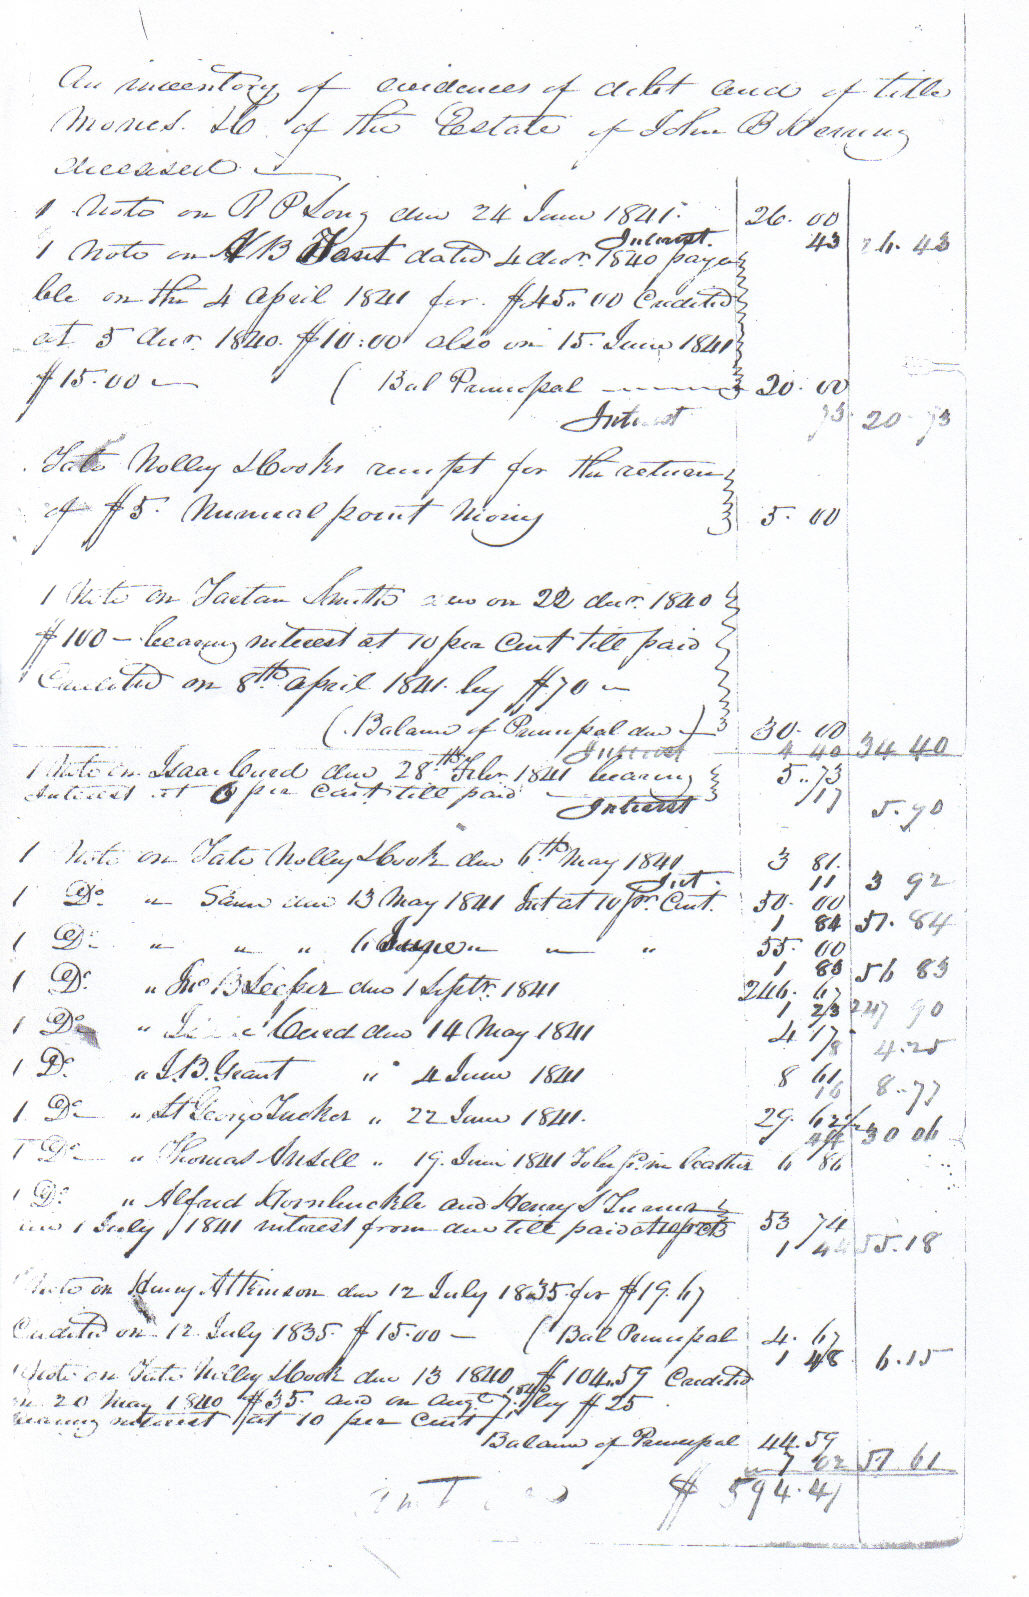 An inventory of evidences of debt and of title
Monies &c. of the Estate of John B
deceased
1 Note on R P Long due 24 June 1841. 26.00
Interest. 43 26.43
1 Note on A B dated 4 decr. 1840 paya
ble on the 4 April 1841 for $45.00 Credited
at 5 decr. 1840. $10:00 also on 15. June 1841
$15.00 — ( Bal Principal 20.00
Interest 73 20.73
Tate Nolley & Cooks receipt for the return
of $5. point Money 5.00
1 Note on Smith due on 22 decr. 1840
$100 — bearing interest at 10 per Cent till paid
Credited on 8th April 1841. by $70 —
(Balance of Principal due) 30.00
Interest 4 40 34 40
1 Note on Isaac Curd due 28th Feby 1841 bearing 5.73
Interest at 6 per Cent till paid Interest 17 5.90
1 Note on Tate Nolley & Cook due 6th May 1841 3 81.
Int. 11 3 92
1 Do. " Same due 13 May 1841 Int at 10 pr. Cent. 50.00
1 84 51.84
1 Do " " " 6 June " " " 55.00
1 83 56 83
1 Do " Jno B Leeper due 1 Septr. 1841 246.67
1 23 247 90
1 Do " Curd due 14 May 1841 4 17
8 4.25
1 Do. " J. B. Grant " 4 June 1841 8 61
16 8.77
1 Do " St George Tucker " 22 June 1841. 29.62½
44 30 06
1 Do " Thomas Ansell " 19. June 1841 in leather 6 86
1 Do. " Alfred Hornbuckle and Henry S Turner
due 1 July 1841 interest from due till paid 53 74
1 44 55.18
1 Note on Henry Atkinson due 12 July 1835 for $19.67
Credited on 12 July 1835. $15.00 — ( Bal Principal 4.67
1 48 6.15
1 Note on Tate Nolley & Cook due 13 1840 $104.59 Credited
on 20 May 1840 $35. and on Aug. 7. 1840 by $25
bearing interest at 10 per Cent
Balance of Principal 44.59
7 02 51.61
$ 594.41